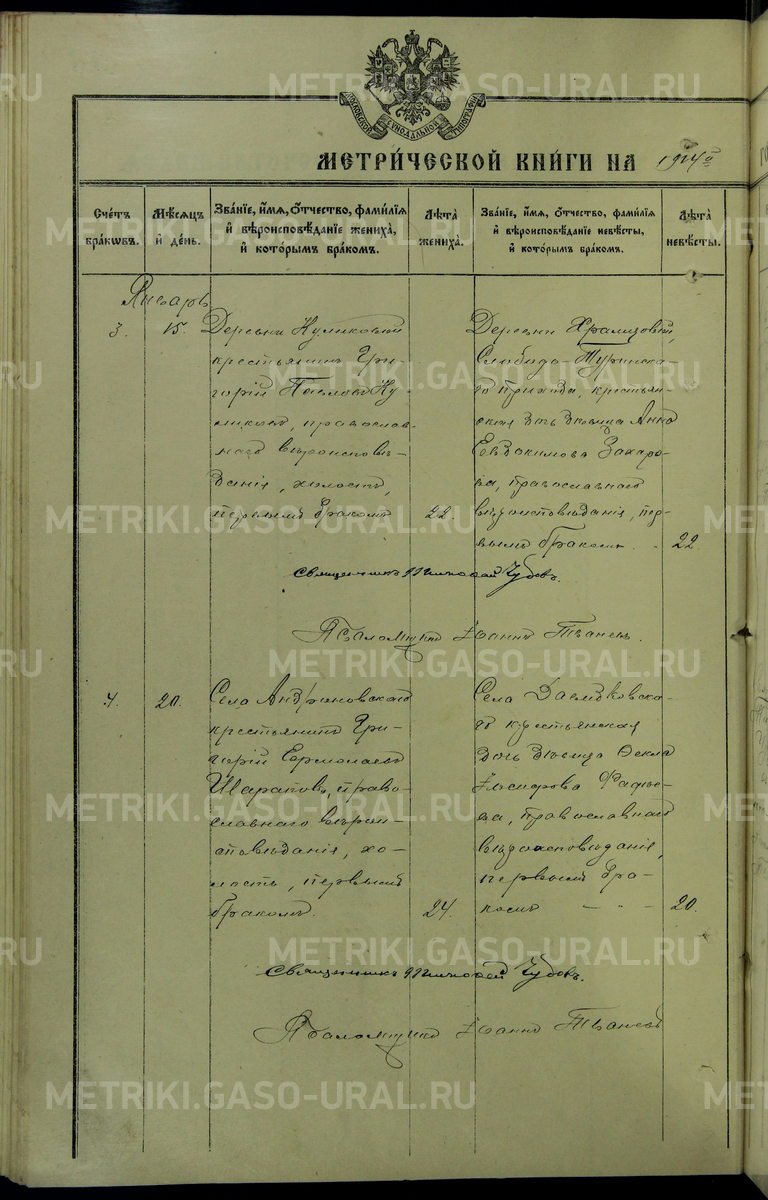 МОСКОВСКОЙ СѴНОДАЛЬНОЙ ТИПОГРАФІИ
МЕТРИ́ЧЕСКОЙ КНИ́ГИ НА
Сче́тъ бра́кѡвъ.
Мѣ́сѧцъ и҆ де́нь.
Зва́нїе, и҆́мѧ, ѻ҆́тчество, фами́лїѧ и҆ вѣроисповѣ́данїе жениха̀, и҆ кото́рымъ бра́комъ.
Лѣ̑та̀ жениха̀.
Зва́нїе, и҆́мѧ, ѻ҆́тчество, фами́лїѧ и҆ вѣроисповѣ́данїе невѣ́сты, и҆ кото́рымъ бра́комъ.
Лѣ̑та̀ невѣ́сты.
Январь
3.
15.
Деревни Куликовой
крестьянинъ Гри-
горій Павловъ Ку-
ликовъ, православ-
наго вѣроисповѣ-
данія, холостъ,
первымъ бракомъ
22.
Деревни
Слободо-Туринска-
го прихода, крестьян-
ская дочь дѣвица Анна
Евдокимова Захаро-
ва, православнаго
вѣроисповѣданія, пер-
вымъ бракомъ.
22.
Священникъ Николай Чубовъ.
Псаломщикъ Іоаннъ
4.
20.
Села Андроновскаго
крестьянинъ Гри-
горій Ермолаевъ
Шараповъ, право-
славнаго вѣрои-
сповѣданія, хо-
лостъ, первымъ
бракомъ.
24.
Села
го крестьянская
дочь дѣвица Ѳекла
ва, православнаго
вѣроисповѣданія,
первымъ бра-
комъ
20.
Священникъ Николай Чубовъ.
Псаломщикъ Іоаннъ
METRIKI.GASO-URAL.RU